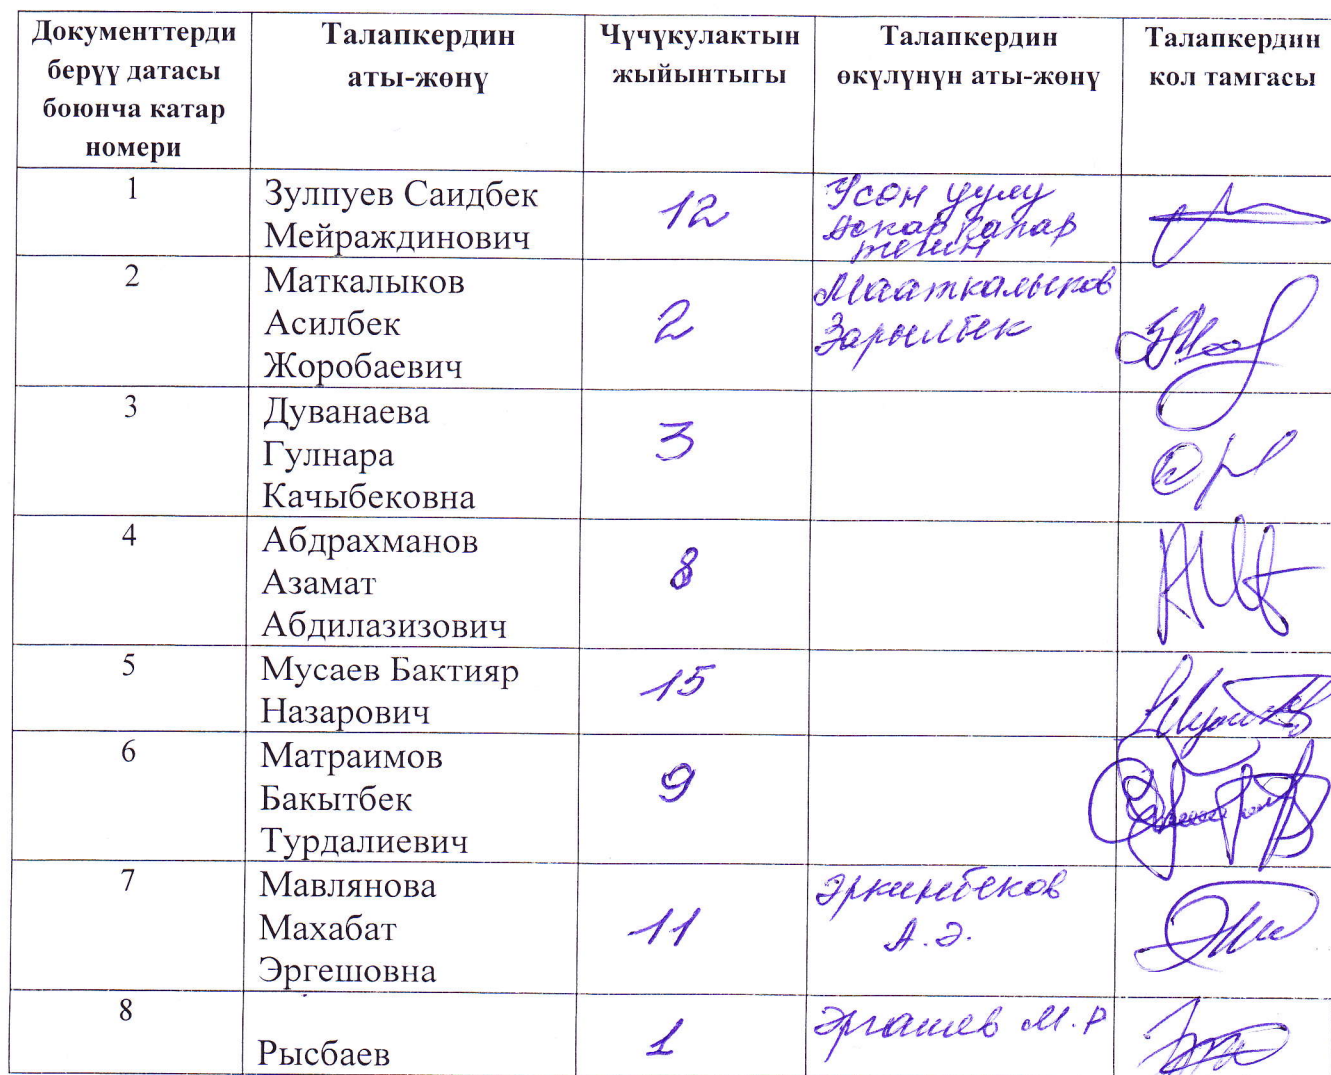 Документтерди
берүү датасы
боюнча катар
номери
Талапкердин
аты-жөнү
Чүчүкулактын
жыйынтыгы
Талапкердин
өкүлүнүн аты-жөнү
Талапкердин
кол тамгасы
1
Зулпуев Саидбек
Мейраждинович
12
Усөн уулу
Аскар Чапар
тегин
2
Маткалыков
Асилбек
Жоробаевич
2
Мааткалыков
Зарылбек
3
Дуванаева
Гулнара
Качыбековна
3
4
Абдрахманов
Азамат
Абдилазизович
8
5
Мусаев Бактияр
Назарович
15
6
Матраимов
Бакытбек
Турдалиевич
9
7
Мавлянова
Махабат
Эргешовна
11
Эркинбеков
А.Э.
8
Рысбаев
1
Эргашев М.Р